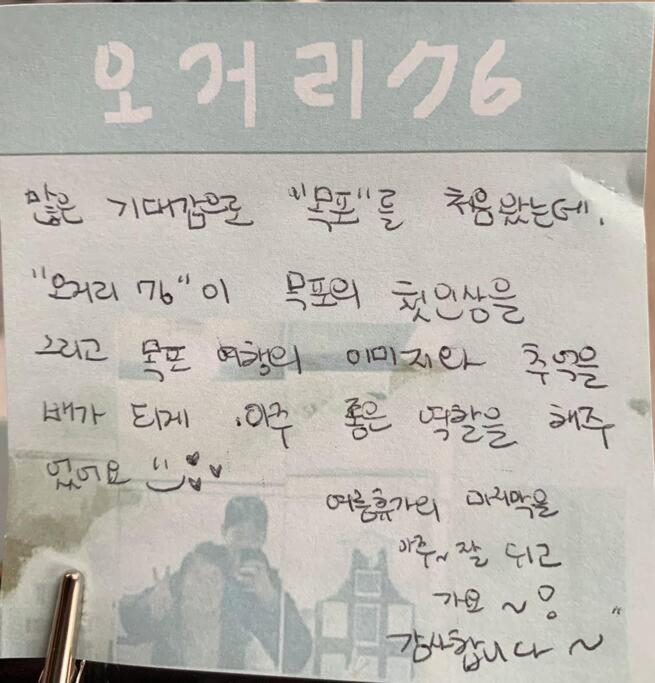 오거리76
많은 기대감으로 "목포"를 처음 왔는데,
"오거리 76"이 목포의 첫인상을
그리고 목포 여행의 이미지와 추억을
배가 되게 아주 좋은 역할을 해주
었어요
여름휴가의 마지막을
아주~ 잘 쉬고
가요 ~
감사합니다 ~"